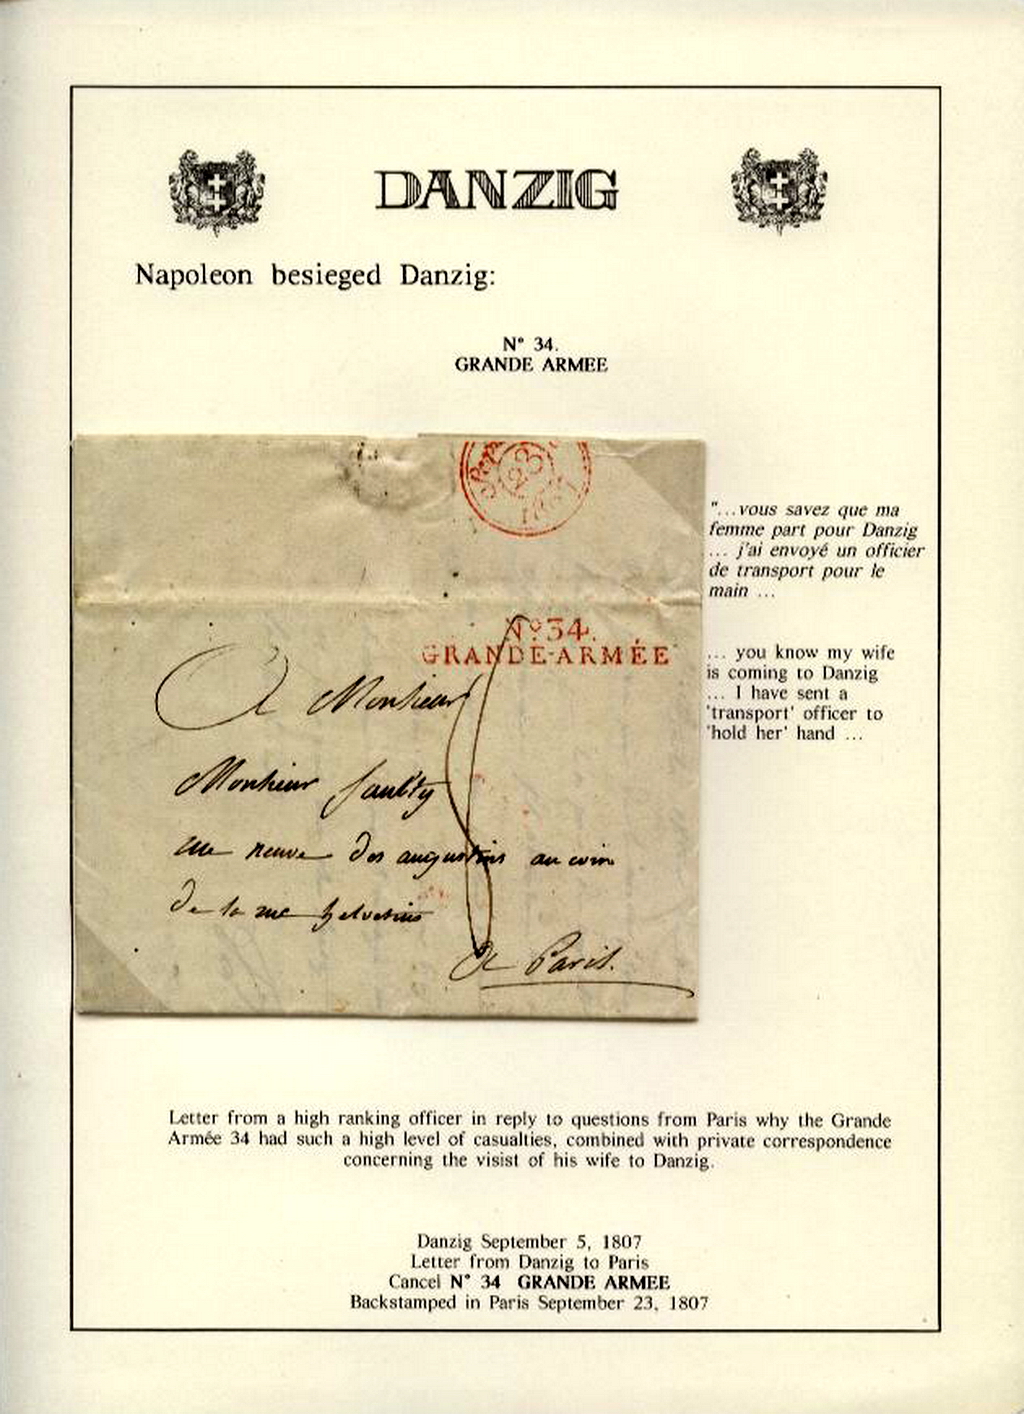 DANZIG
Napoleon besieged Danzig:
N° 34.
GRANDE ARMEE
23
1807
No 34.
GRANDE-ARMÉE
A Monsieur
Monsieur
rue neuve des augustins au coin
de la rue helvetius
A Paris.
"...vous savez que ma
femme part pour Danzig
... j'ai envoyé un officier
de transport pour le
main ...
... you know my wife
is coming to Danzig
... I have sent a
'transport' officer to
'hold her' hand ...
Letter from a high ranking officer in reply to questions from Paris why the Grande
Armée 34 had such a high level of casualties, combined with private correspondence
concerning the visist of his wife to Danzig.
Danzig September 5, 1807
Letter from Danzig to Paris
Cancel N° 34 GRANDE ARMEE
Backstamped in Paris September 23, 1807